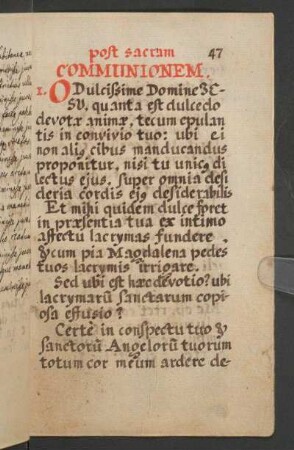 post sacram 47
COMMUNIONEM.
1. O Dulcissime Domine JE-
SU, quanta est dulcedo
devotæ animæ, tecum epulan
tis in convivio tuo: ubi ei
non aliꝰ cibus manducandus
proponitur, nisi tu unicꝰ di
lectus ejus, super omnia desi
deria cordis ejꝰ desiderabilis
Et mihi quidem dulce foret
in præsentia tua ex intimo
affectu lacrymas fundere,
& cum pia Magdalena pedes
tuos lacrymis irrigare.
Sed ubi est hæc devotio? ubi
lacrymarū sanctarum copi
osa effusio?
Certè in conspectu tuo &
sanctorū Angelorū tuorum
totum cor meum ardere de-